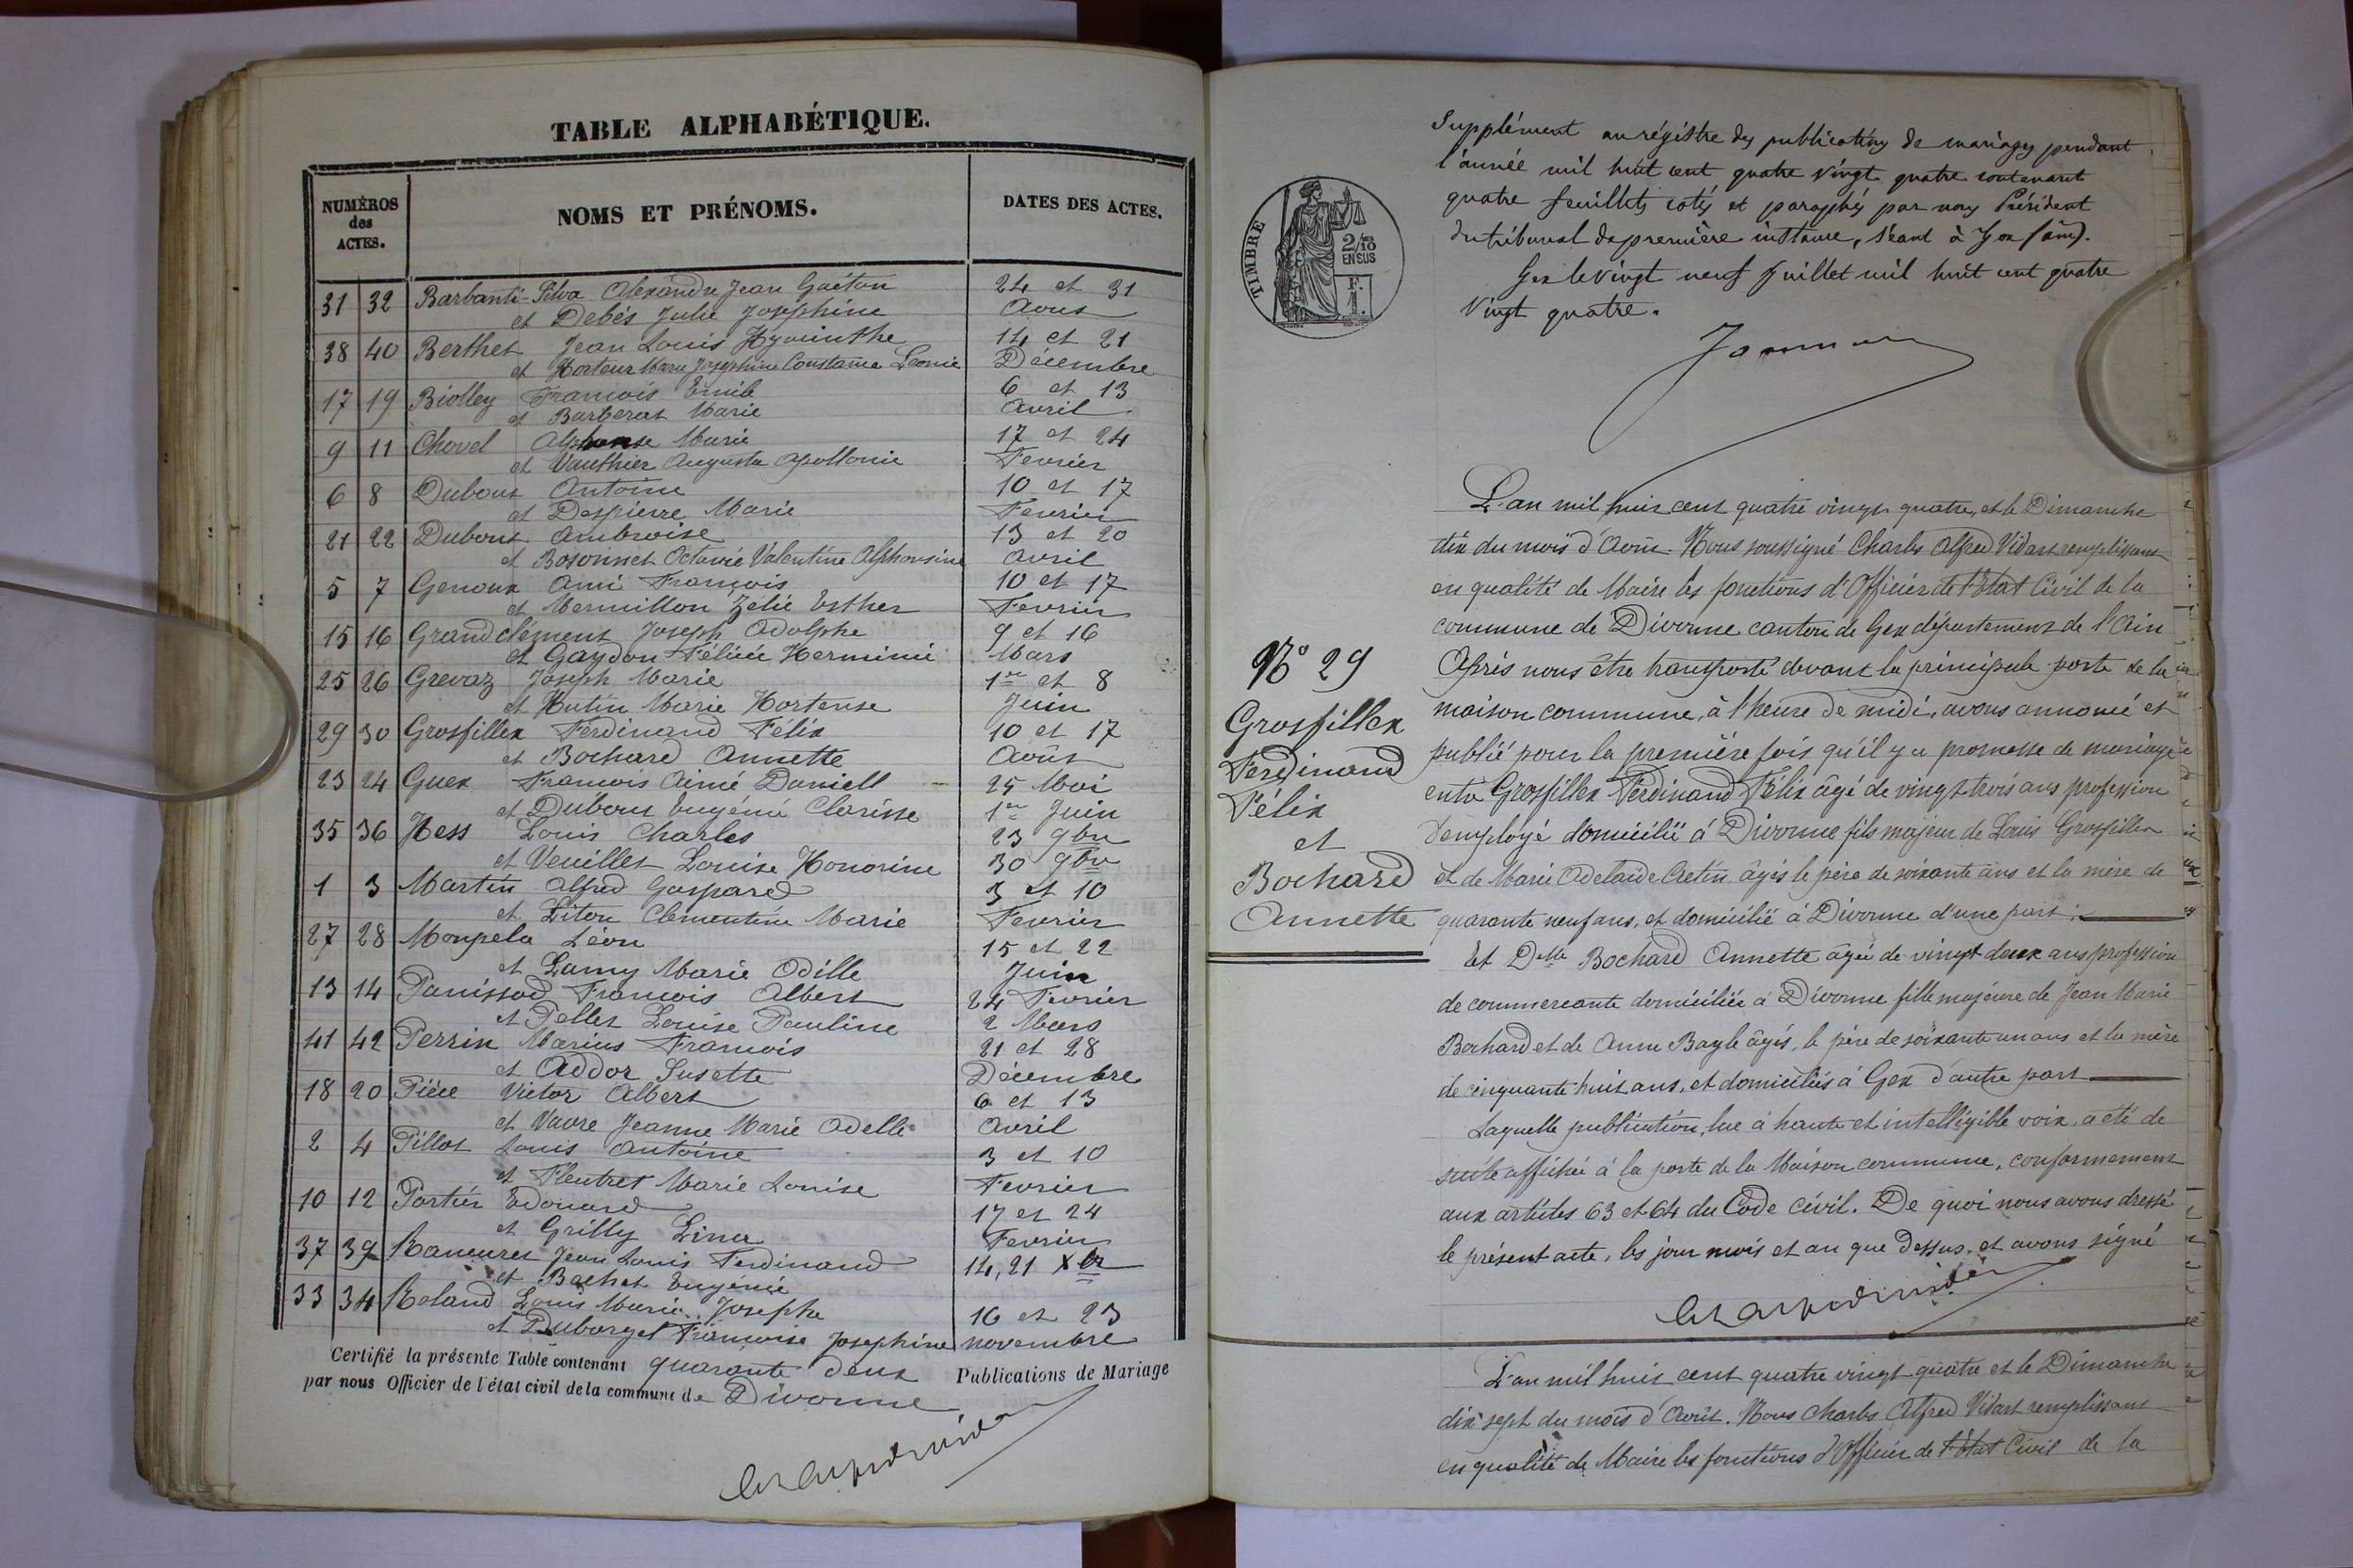 TABLE ALPHABÉTIQUE.
NUMÉROS
des
ACTES.
NOMS ET PRÉNOMS.
DATES DES ACTES.
31 32 Barbanti-Silva Alexandre Jean Gaétan 24 et 31
et Debés Julie Joséphine Aous
38 40 Berthet Jean Louis Hyacinthe 14 et 21
et Hosteur Marie Joséphine Constance Léonie Décembre
17 19 Biolley François Emile 6 et 13
et Barberat Marie Avril
9 11 Chovel Alphonse Marie 17 et 24
et Vauthier Augusta Apollonie Fevrier
6 8 Dubout Antoine 10 et 17
et Despierre Marie Fevrier
21 22 Dubout Ambroise 13 et 20
et Bosonnet Octavie Valentine Alphonsine Avril
5 7 Genoux Ami François 10 et 17
et Mermillon Zélie Esther Fevrier
15 16 Grandclément Joseph Adolphe 9 et 16
et Gaydon Félicie Herminie Mars
25 26 Grevaz Joseph Marie 1er et 8
et Hutin Marie Hortense Juin
29 30 Grosfillex Ferdinand Félix 10 et 17
et Bochard Annette Août
23 24 Guex François Aimé Daniell 25 Mai
et Dubout Eugénie Clarisse 1er Juin
35 36 Hess Louis Charles 23 9bre
et Veuillet Louise Honorine 30 9bre
1 3 Martin Alfred Gaspard 3 et 10
et Liton Clémentine Marie Fevrier
27 28 Monpela Léon 15 et 22
et Lamy Marie Odille Juin
13 14 Panissod François Albert 24 Fevrier
et Pellet Louise Pauline 2 Mars
41 42 Perrin Marius François 21 et 28
et Addor Susette Décembre
18 20 Piéce Victor Albert 6 et 13
et Vavre Jeanne Marie Adelle Avril
2 4 Pillot Louis Antoine 3 et 10
et Fleutret Marie Louise Fevrier
10 12 Portier Edouard 17 et 24
et Grilly Lina Fevrier
37 39 Jean Louis Ferdinand 14, 21 Xbr
et Bachet Eugénie
33 34 Roland Louis Marie Josephe 16 et 23
et Duborget Françoise Josephine novembre
Certifié la présente Table contenant quarante deux Publications de Mariage
par nous Officier de l'état civil de la commune de Divonne
Supplément au régistre des publications de mariages pendant
l'année mil huit cent quatre vingt quatre contenant
quatre feuillets cotés et paraphés par nous Président
du tribunal de première instance, séant à Gex (ain).
Gex le vingt neuf Juillet mil huit cent quatre
vingt quatre.
TIMBRE
2/10
EN SUS
F.
1.
L'an mil huit cent quatre vingt quatre, et le Dimanche
dix du mois d'Août. Nous soussigné Charles Alfred Vidart remplissant
en qualité de Maire les fonctions d'Officier de l'État Civil de la
commune de Divonne canton de Gex département de l'Ain
Après nous être transporté devant la principale porte de la
maison commune, à l'heure de midi, avons annoncé et
publié pour la première fois qu'il y a promesse de mariage
entre Grosfillex Ferdinand Félix âgé de vingt trois ans profession
d'employé domicilié à Divonne fils majeur de Louis Grosfillex
et de Marie Adelaide Cretin âgés le père de soixante ans et la mère de
quarante neuf ans, et domicilié à Divonne d'une part;
Et Delle Bochard Annette âgée de vingt deux ans profession
de commercante domiciliée à Divonne fille majeure de Jean Marie
Bochard et de Anne Bayle âgés, le père de soixante un ans et la mère
de cinquante huit ans, et domiciliés à Gex d'autre part
Laquelle publication, lue à haute et intelligible voix, a été de
suite affichée à la porte de la Maison commune, conformement
aux articles 63 et 64 du Code civil. De quoi nous avons dressé
le présent acte, les jour mois et an que dessus, et avons signé
No 29
Grosfillex
Ferdinand
Félix
et
Bochard
Annette
L'an mil huit cent quatre vingt quatre et le Dimanche
dix sept du mois d'Août. Nous Charles Alfred Vidart remplissant
en qualité de Maire les fonctions d'Officier de l'État Civil de la